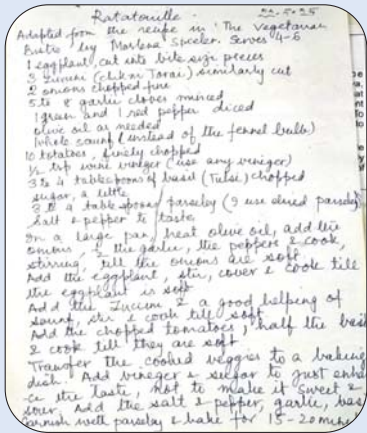 Ratatouille
Adapted from the recipe in 'The Vegetarian
Bistro' by Marlena Spieler. Serves 4-6
1 eggplant, cut into bite size pieces
3 Zucini (chikni Torai) similarly cut
2 onions chopped fine
5 to 8 garlic cloves minced
1 green and 1 red pepper diced
olive oil as needed
Whole saunf (instead of the fennel bulb)
10 tomatoes, finely chopped
½ tsp wine vineger (use any vineger)
3 to 4 tablespoons of basil (Tulsi) chopped
sugar, a little
3 to 4 table spoons parseley (I use dried parseley)
Salt & pepper to taste
In a large pan, heat olive oil, add the
onions, ½ the garlic, the peppers & cook,
stirring till the onions are soft
Add the eggplant, stir, cover & cook till
the eggplant is soft
Add the Zucini & a good helping of
saunf, stir & cook till soft
Add the chopped tomatoes, half the basil
& cook till they are soft
Transfer the cooked veggies to a baking
dish. Add vineger & sugar to just enhan
-ce the taste, not to make it sweet &
sour. Add the salt & pepper, garlic, bas
Garnish with parseley & bake for 15-20 minut